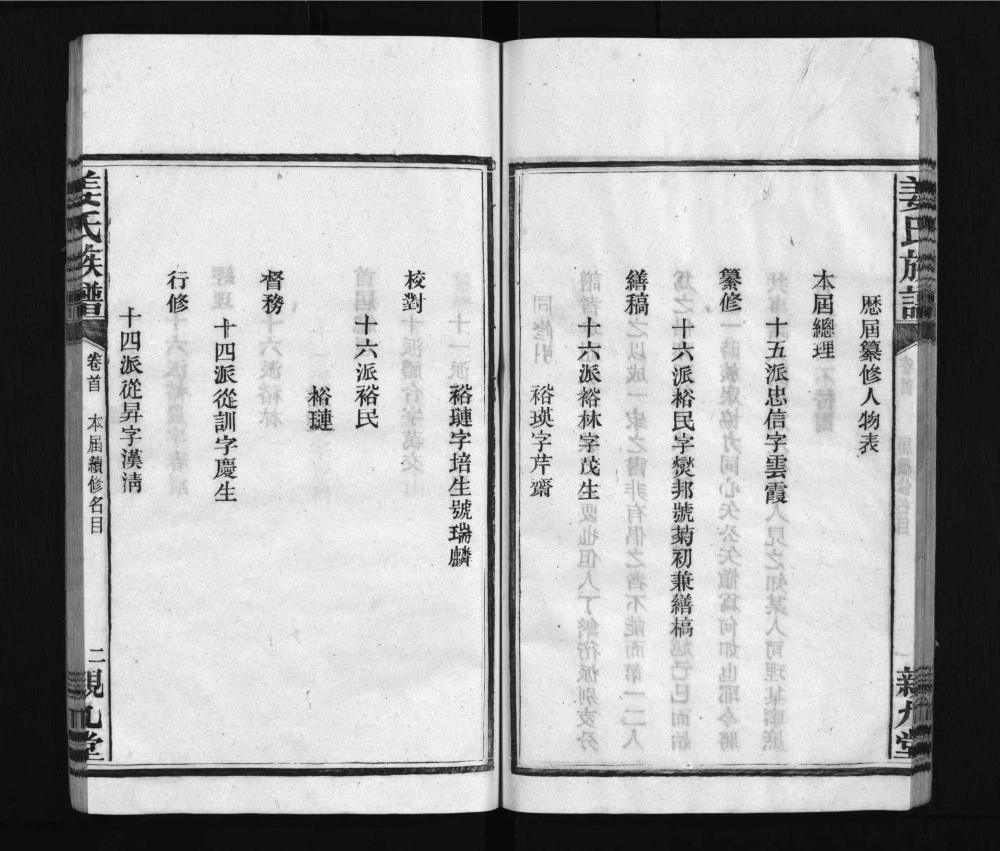 姜氏族譜
親九堂
歷屆纂修人物表
本屆總理
十五派忠信字雲霞
纂修
十六派裕民字燮邦號菊初兼繕稿
繕稿
十六派裕林字茂生
裕瑛字芹齋
裕璉字培生號瑞麟
校對
十六派裕民
裕璉
督務
十四派從訓字慶生
行修
十四派從昇字漢清
姜氏族譜
卷首
本屆續修名目
二
親九堂